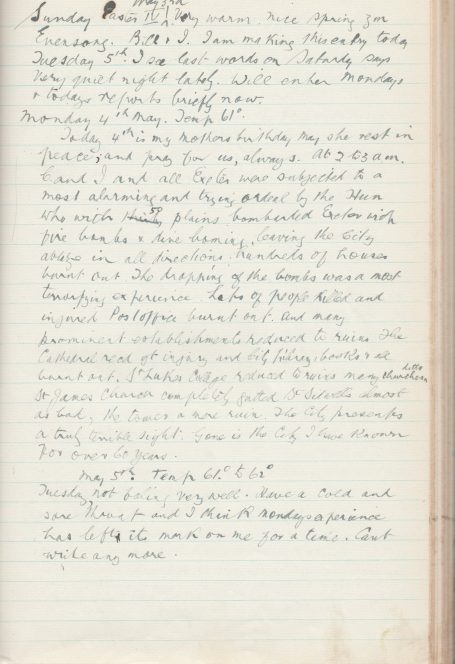 May 3rd
Sunday Easter IV Very warm. nice spring 3m
Evensong. Bill & I. I am making this entry today
Tuesday 5th. I see last words on Saturday says
Very quiet night lately. Will enter Mondays
& todays reports briefly now.
Monday 4th May. Temp 61°
Today 4th is my mothers birthday may she rest in
peace, and pray for us, always. At 2 to 3 am.
E and I and all Exeter were subjected to a
most alarming and trying ordeal by the Hun
who with plains bombarded Exeter with
fire bombs & dive boming, leaving the City
ablaze in all directions. hundreds of houses
burnt out The dropping of the bombs was a most
terrorfying experience. Lots of people killed and
injured Post office burnt out. and many
prominent establishments reduced to ruins. The
Cathedral recd of injury and City library books & all
burnt out. St Lukes College reduced to ruins many churches ditto
St James Church completely gutted St Sidwells almost
as bad, the tower a mere ruin. The City presents
a truly terrible sight. Gone is the City I have known
for over 60 years.
May 5th. Temp 61° to 62°
Tuesday not feeling very well. Have a cold and
sore throat and I think mondays experience
has left its mark on me for a time. Cant
write any more.